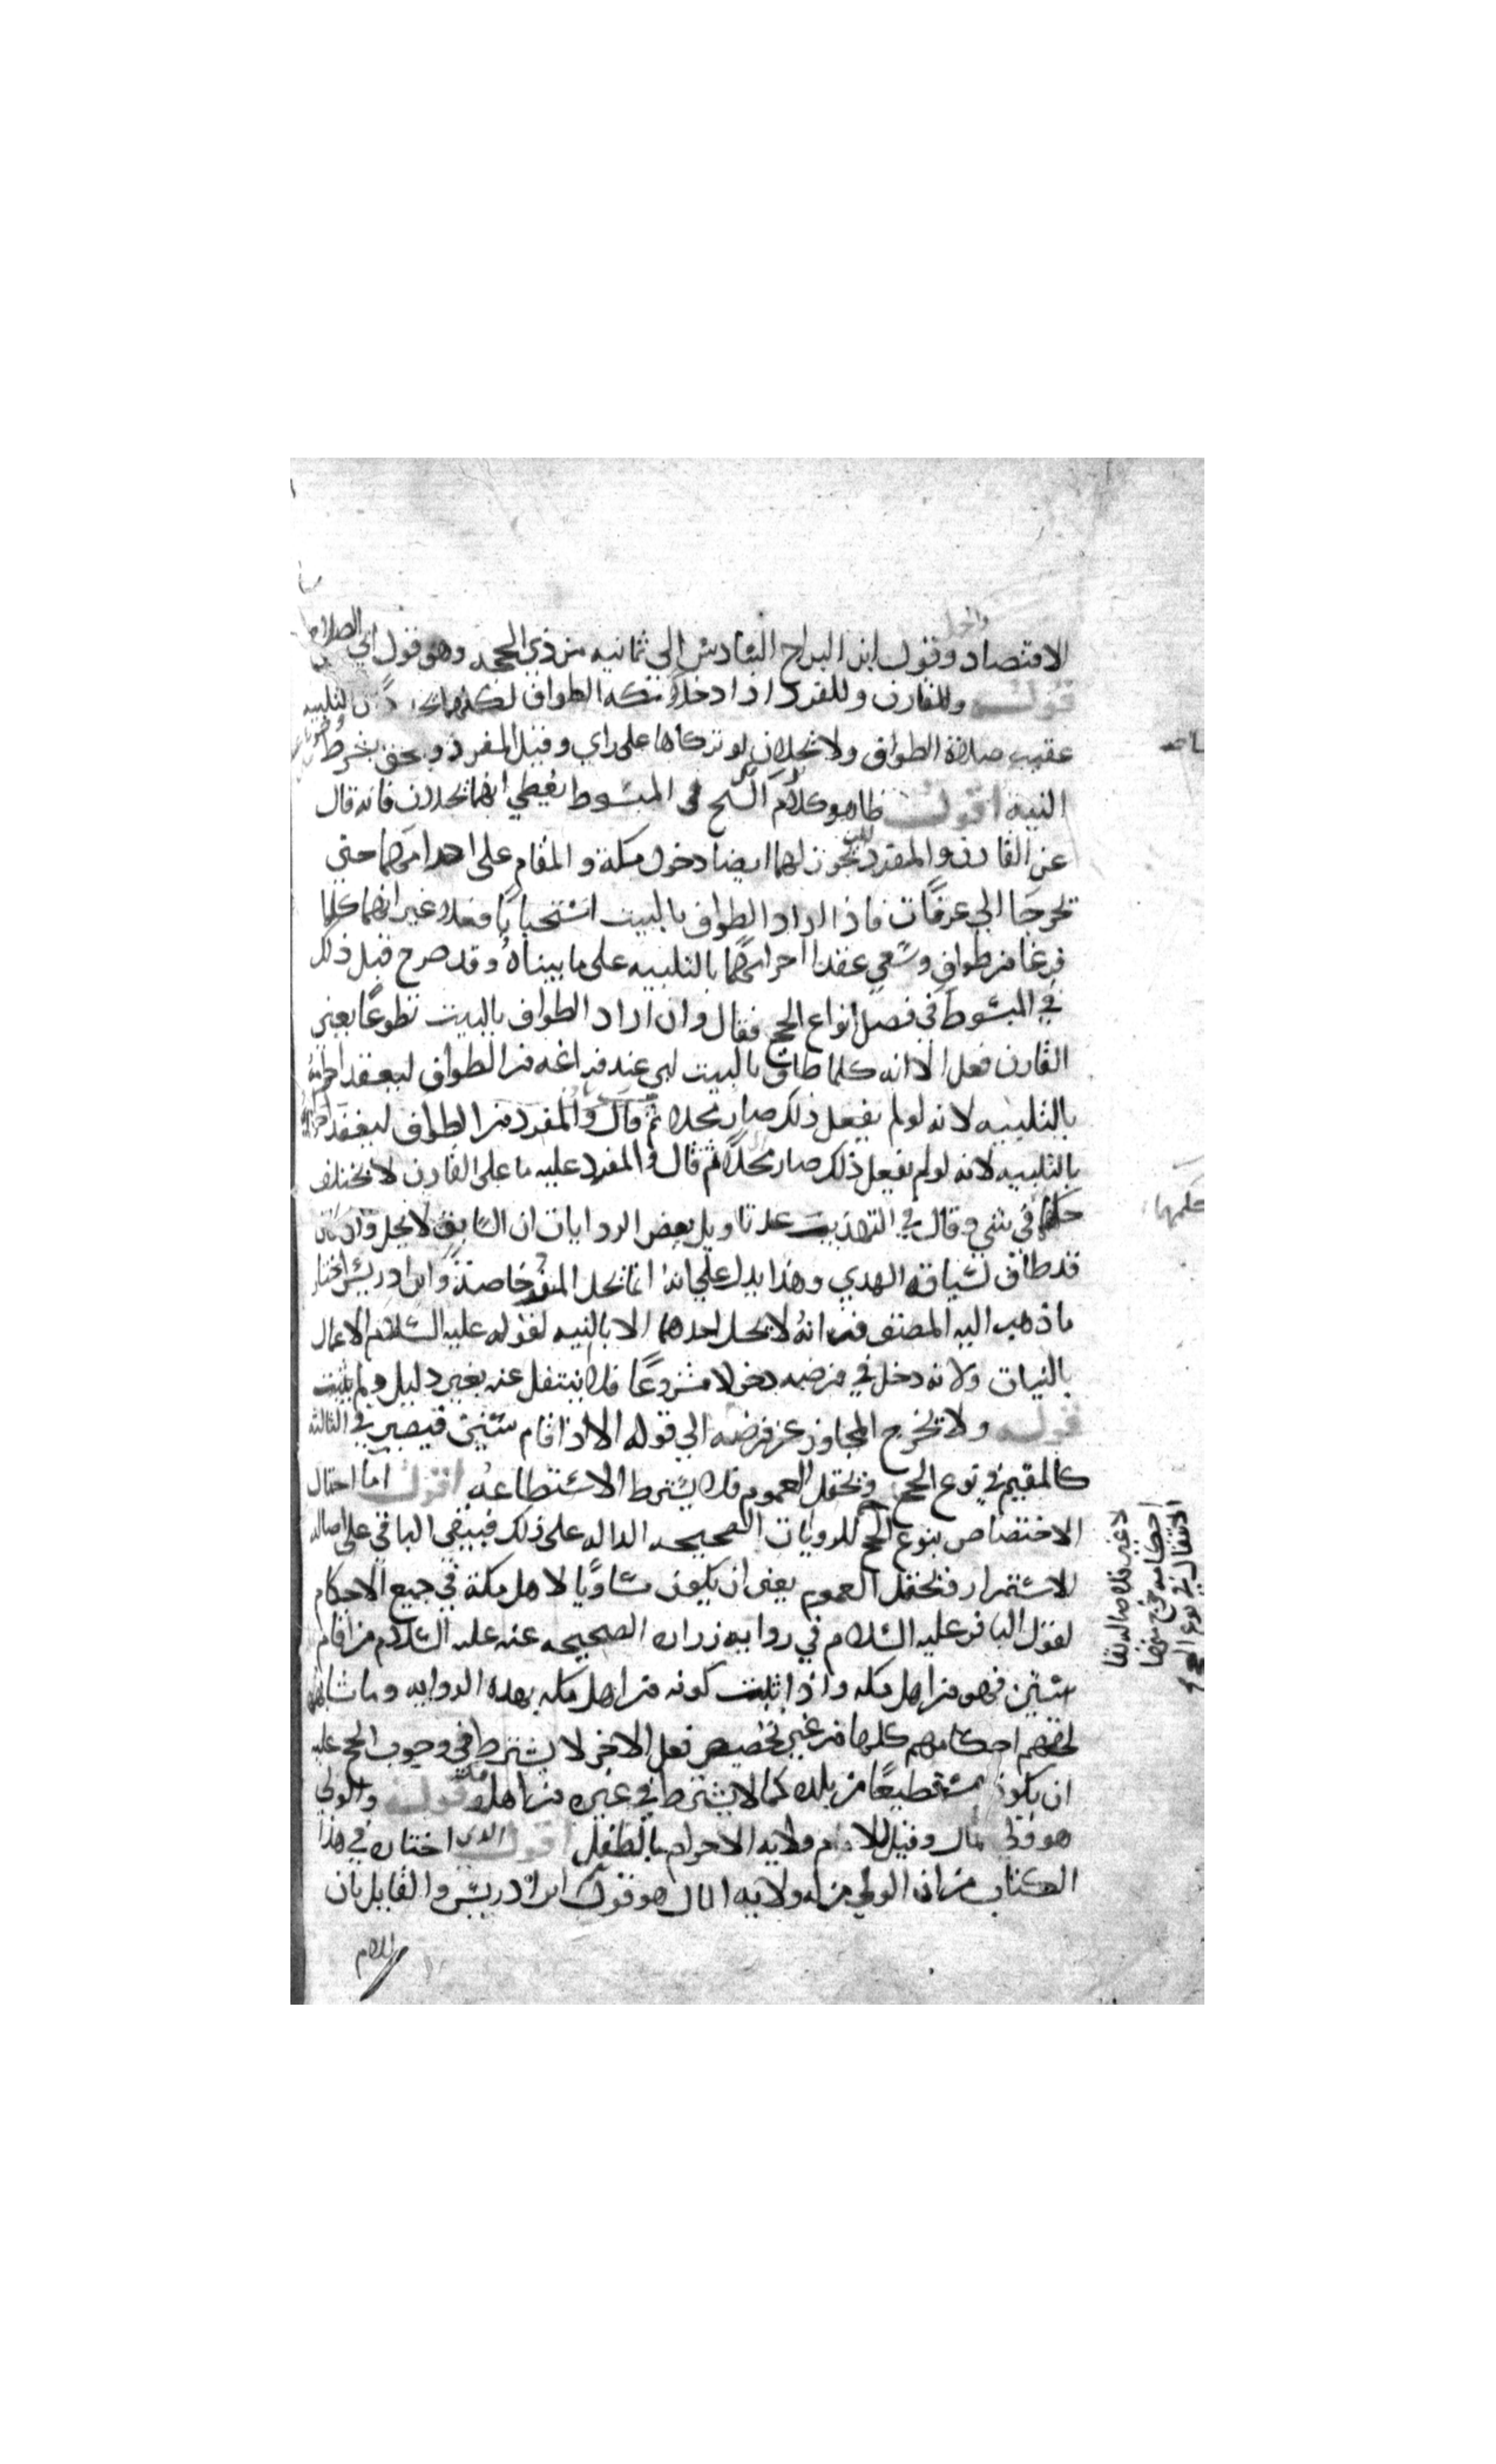 الاقتصاد وقول ابن البراج السادس الي ثمانيه من ذي الحجه وهو قول ابي الصلاح
قوله وللقارن وللمفرد اذا دخلا مكه الطواف لكنهما التلبيه
عقيب صلاة الطواف ولا يحلان لو تركاها على راي وقيل المفرد وبحق بشرط
النيه اقول ظاهر كلام الشيخ في المبسوط يعطي انهما يحلان فانه قال
عن القارن والمفرد يجوز لهما ايضا دخول مكة والمقام على احرامهما حتى
يخرجا الي عرفات فاذا اراد الطواف بالبيت استحبابا فعلا غير انهما كلما
فرغا من طواف وسعي عقدا احرامهما بالتلبيه على ما بيناه وقد صرح قبل ذلك
في المبسوط في فصل انواع الحج فقال وان اراد الطواف بالبيت تطوعًا يعني
القارن فعل الا انه كلما طاف بالبيت لبى عند فراغه من الطواف ليعقد احرامه
بالتلبيه لانه لو لم يفعل ذلك صار محلا ثم قال والمفرد من الطواف ليعقد احرامه
بالتلبيه لانه لو لم يفعل ذلك صار محلا ثم قال والمفرد عليه ما على القارن لا يختلف
حكمهما في شي وقال في التهذيب عند تاويل بعض الروايات ان السايق لا يحل وان كان
قد طاف لسياقه الهدي وهذا يدل علي انه انما يحل المفرد خاصة وابن ادريس اختار
ما ذهب اليه المصنف من انه لا يحل احدهما الا بالنيه لقوله عليه السلام الاعمال
بالنيات ولانه دخل في فرضه دخولا مشروعًا فلا ينتقل عنه بغير دليل ولم يثبت
قوله ولا يخرج المجاور عن فرضه الي قوله الا اذا اقام سنتين فيصير في الثالثه
كالمقيم في نوع الحج ويحتمل العموم فلا يشترط الاستطاعه اقول اما احتمال
الاختصاص بنوع الحج للروايات الصحيحه الداله على ذلك فيبقى الباقي على اصاله
الاستمرار ويحتمل العموم يعني ان يكون مساويًا لاهل مكة في جميع الاحكام
لقول الباقر عليه السلام في روايه زراره الصحيحه عنه عليه السلام من اقام
سنتين فهو من اهل مكه واذا ثبت كونه من اهل مكه بهذه الروايه وما شابهها
لحقهم احكامهم كلها من غير تخصيص فعل الاخر لا يشترط في وجوب الحج عليه
ان يكون مستطيعًا من بلده كما لا يشترط في غيره من اهل مكه قوله والولي
هو ولي المال وقيل للام ولايه الاحرام بالطفل اقول الذي اختاره في هذا
الكتاب من ان الولي من له ولايه المال هو قول ابن ادريس والقايل بان
للام
حكمهما
لا غير فلاصاله بقا
احكامه خرج منها
الانتقال في نوع الحج